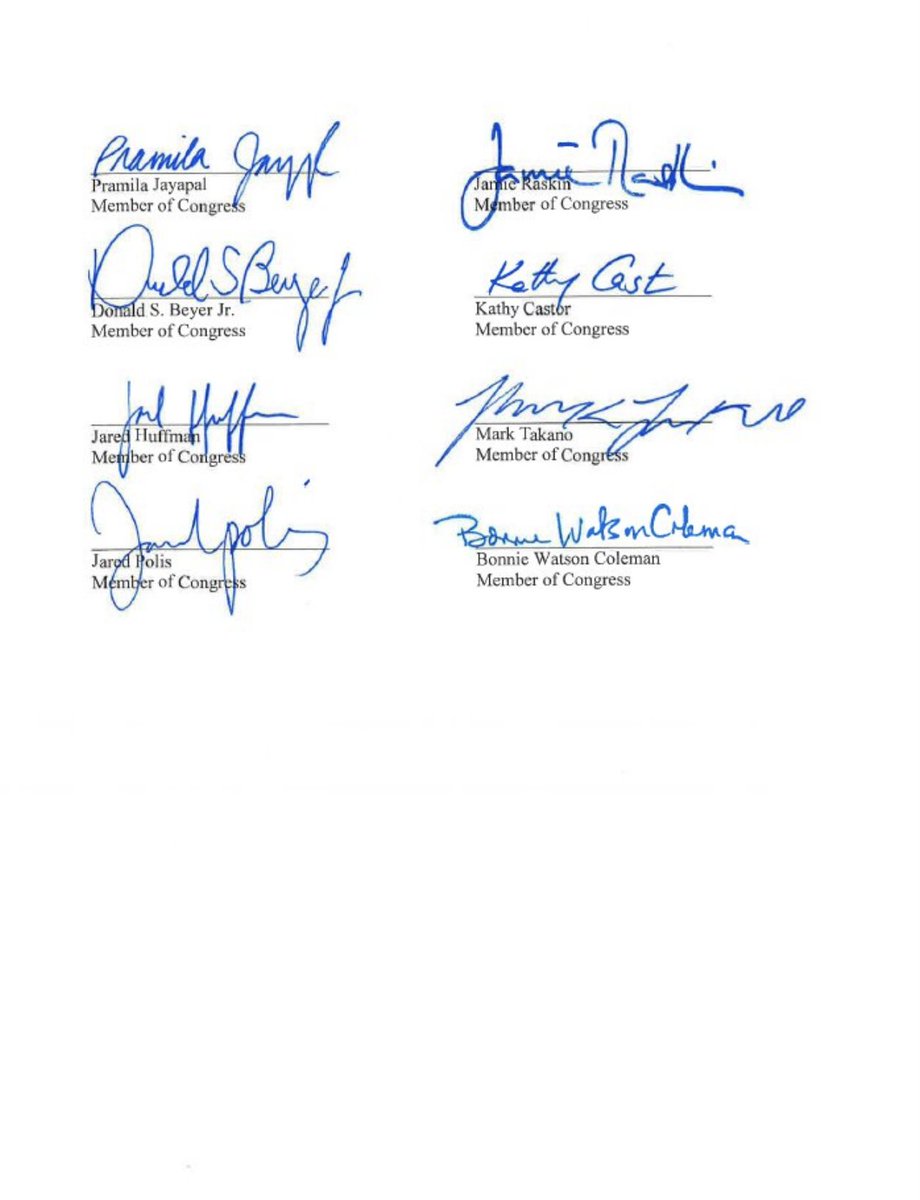 Pramila Jayapal
Pramila Jayapal
Member of Congress
Jamie Raskin
Jamie Raskin
Member of Congress
Donald S Beyer Jr
Donald S. Beyer Jr.
Member of Congress
Kathy Cast
Kathy Castor
Member of Congress
Jared Huffman
Jared Huffman
Member of Congress
Mark Takano
Mark Takano
Member of Congress
Jared Polis
Jared Polis
Member of Congress
Bonnie Watson Coleman
Bonnie Watson Coleman
Member of Congress